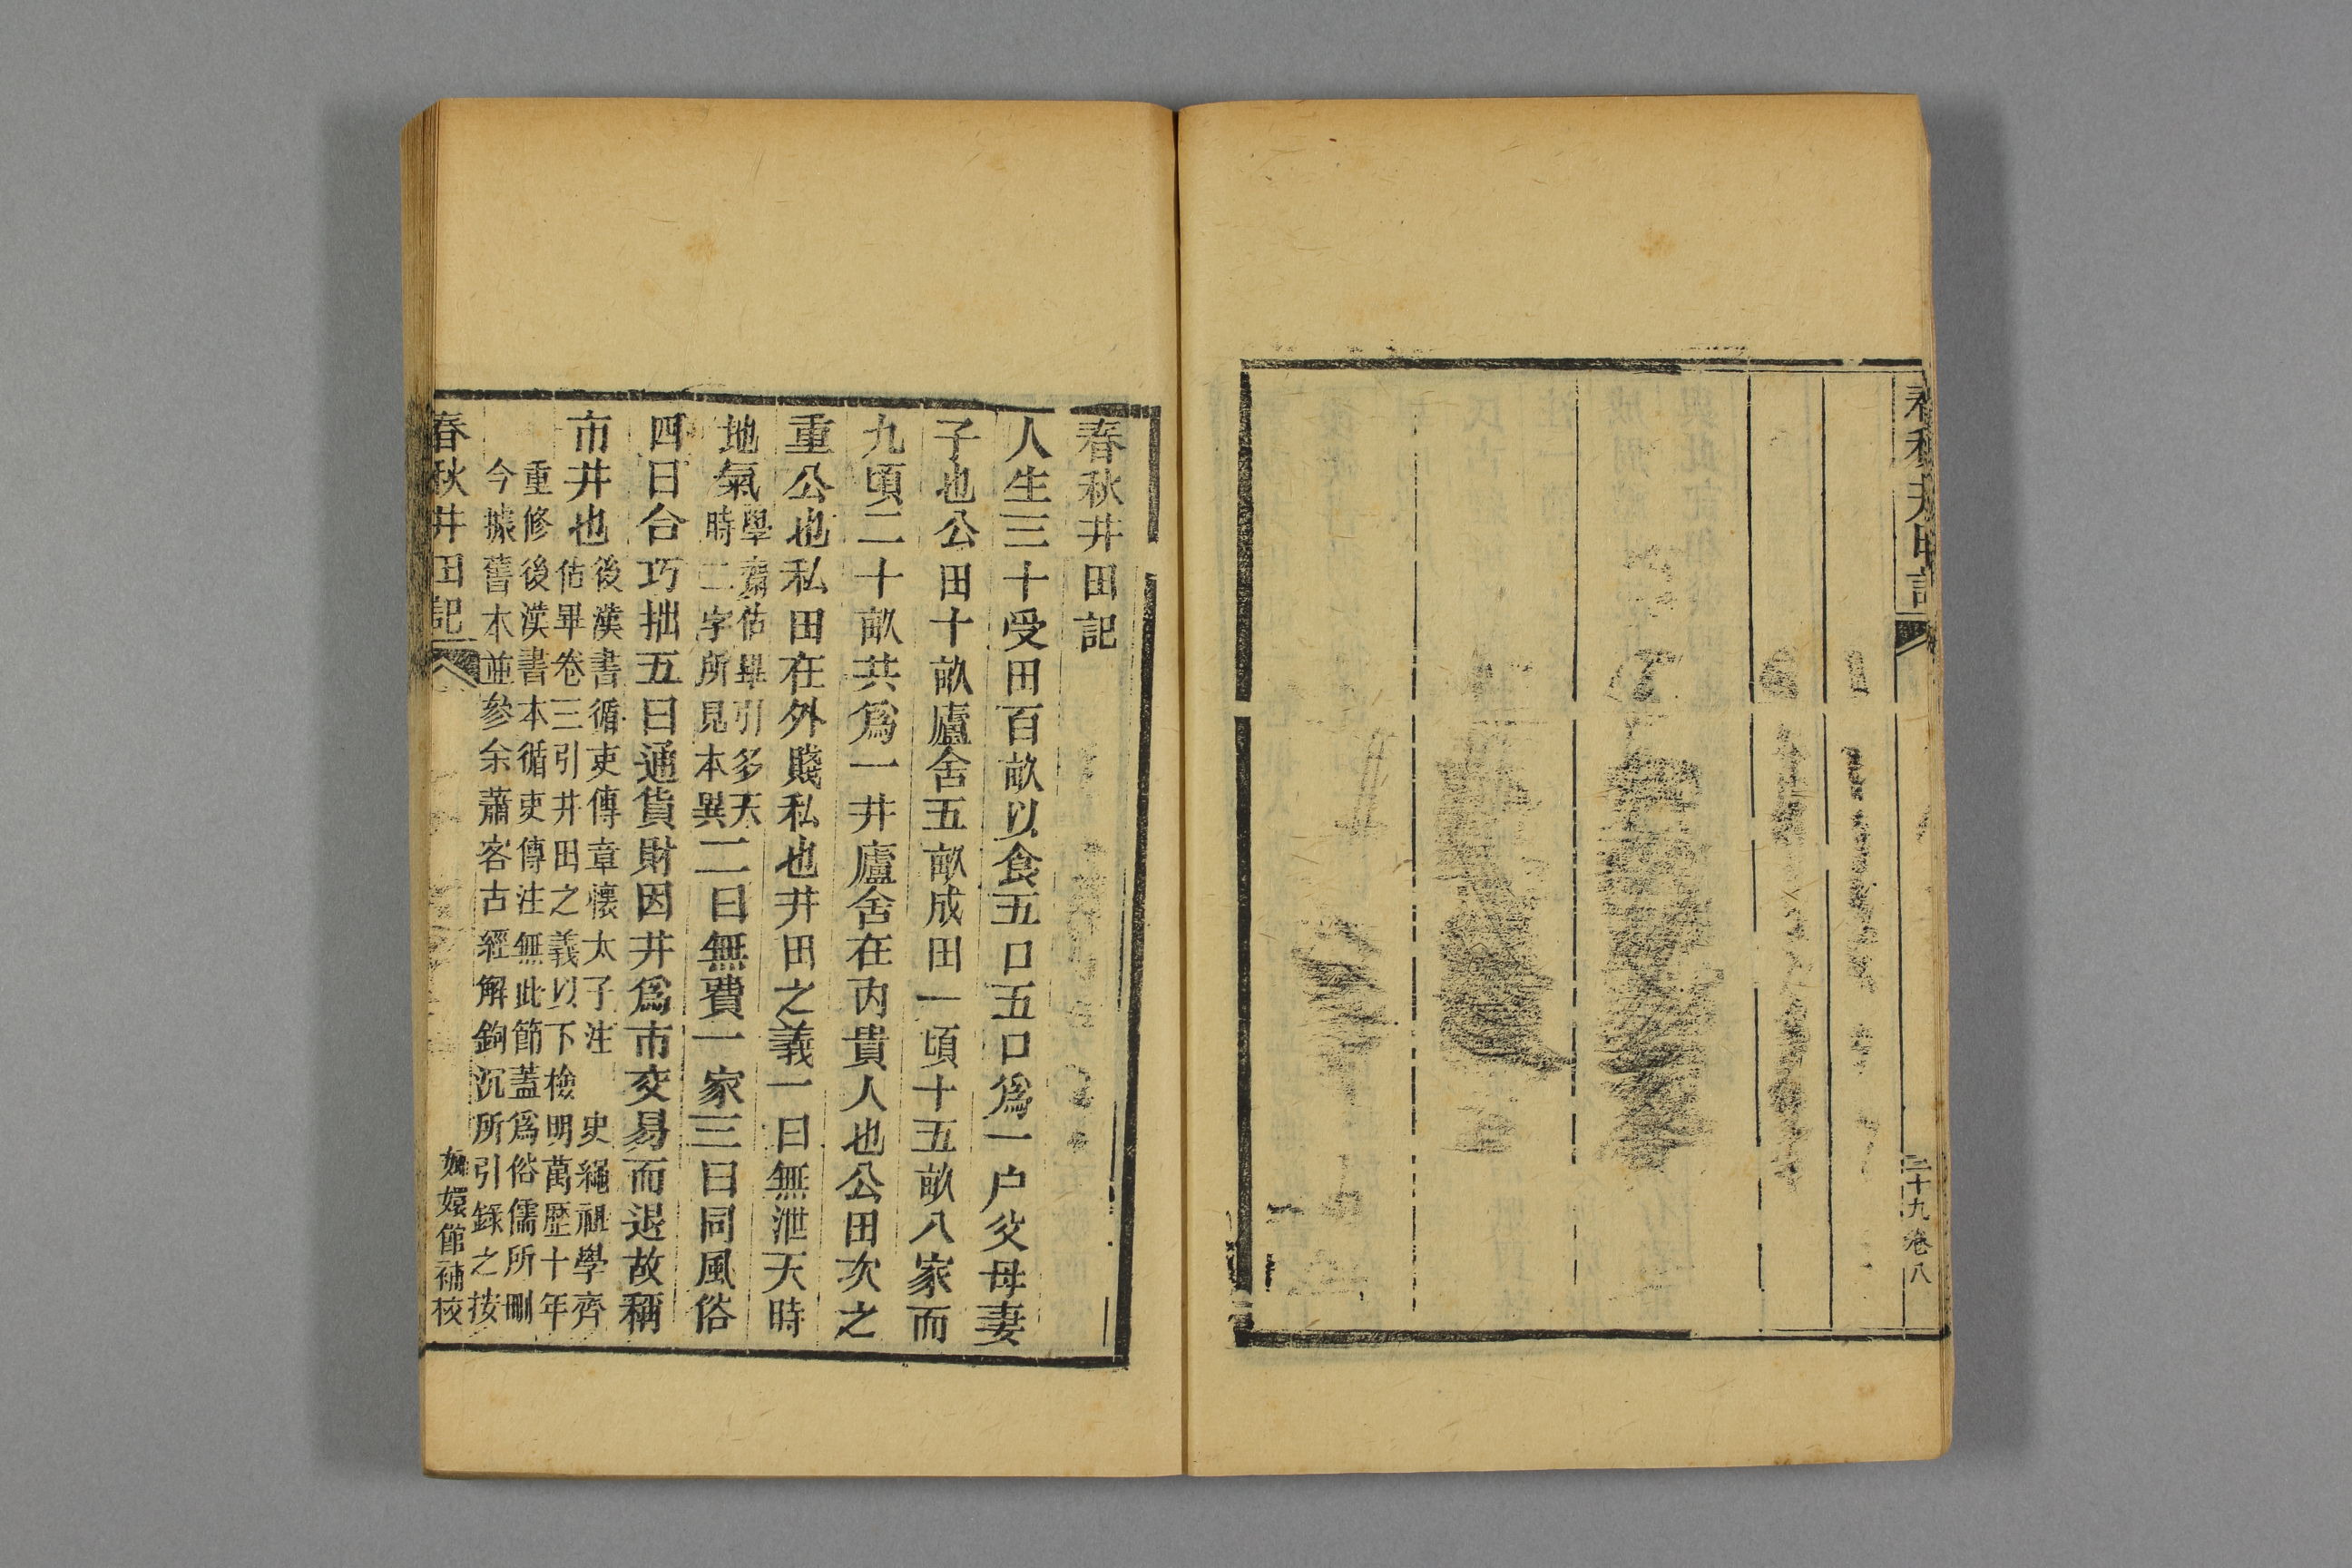 春秋井田記
二十九卷八
春秋井田記
人生三十受田百畝以食五口五口爲一戸父母妻
子也公田十畝廬舍五畝成田一頃十五畝八家而
九頃二十畝共爲一井廬舍在內貴人也公田次之
重公也私田在外賤私也井田之義一曰無泄天時
地氣學齋佔畢引多天
時二字所見本異二曰無費一家三曰同風俗
四曰合巧拙五曰通貨財因井爲市交易而退故稱
市井也後漢書循吏傳章懷太子注 史繩祖學齊
佔畢卷三引井田之義以下檢明萬歷十年
重修後漢書本循吏傳注無此節蓋爲俗儒所刪
今據舊本並參余蕭客古經解鉤沉所引錄之按
春秋井田記
嫏嬛館補校